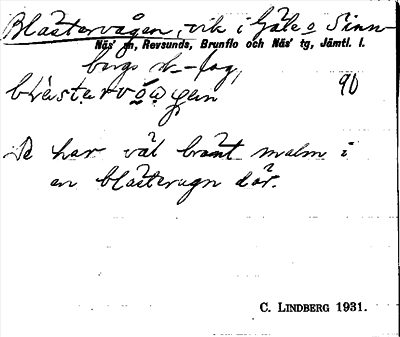 Blästervågen, vik i Gåle o Sinn-
Näs' sn, Revsunds, Brunflo och Näs' tg, Jämtl. l.
bergs sk.-lag,
blästervọ̊gen 90
De har väl bränt malm i
en blästerugn där.
C. LINDBERG 1931.